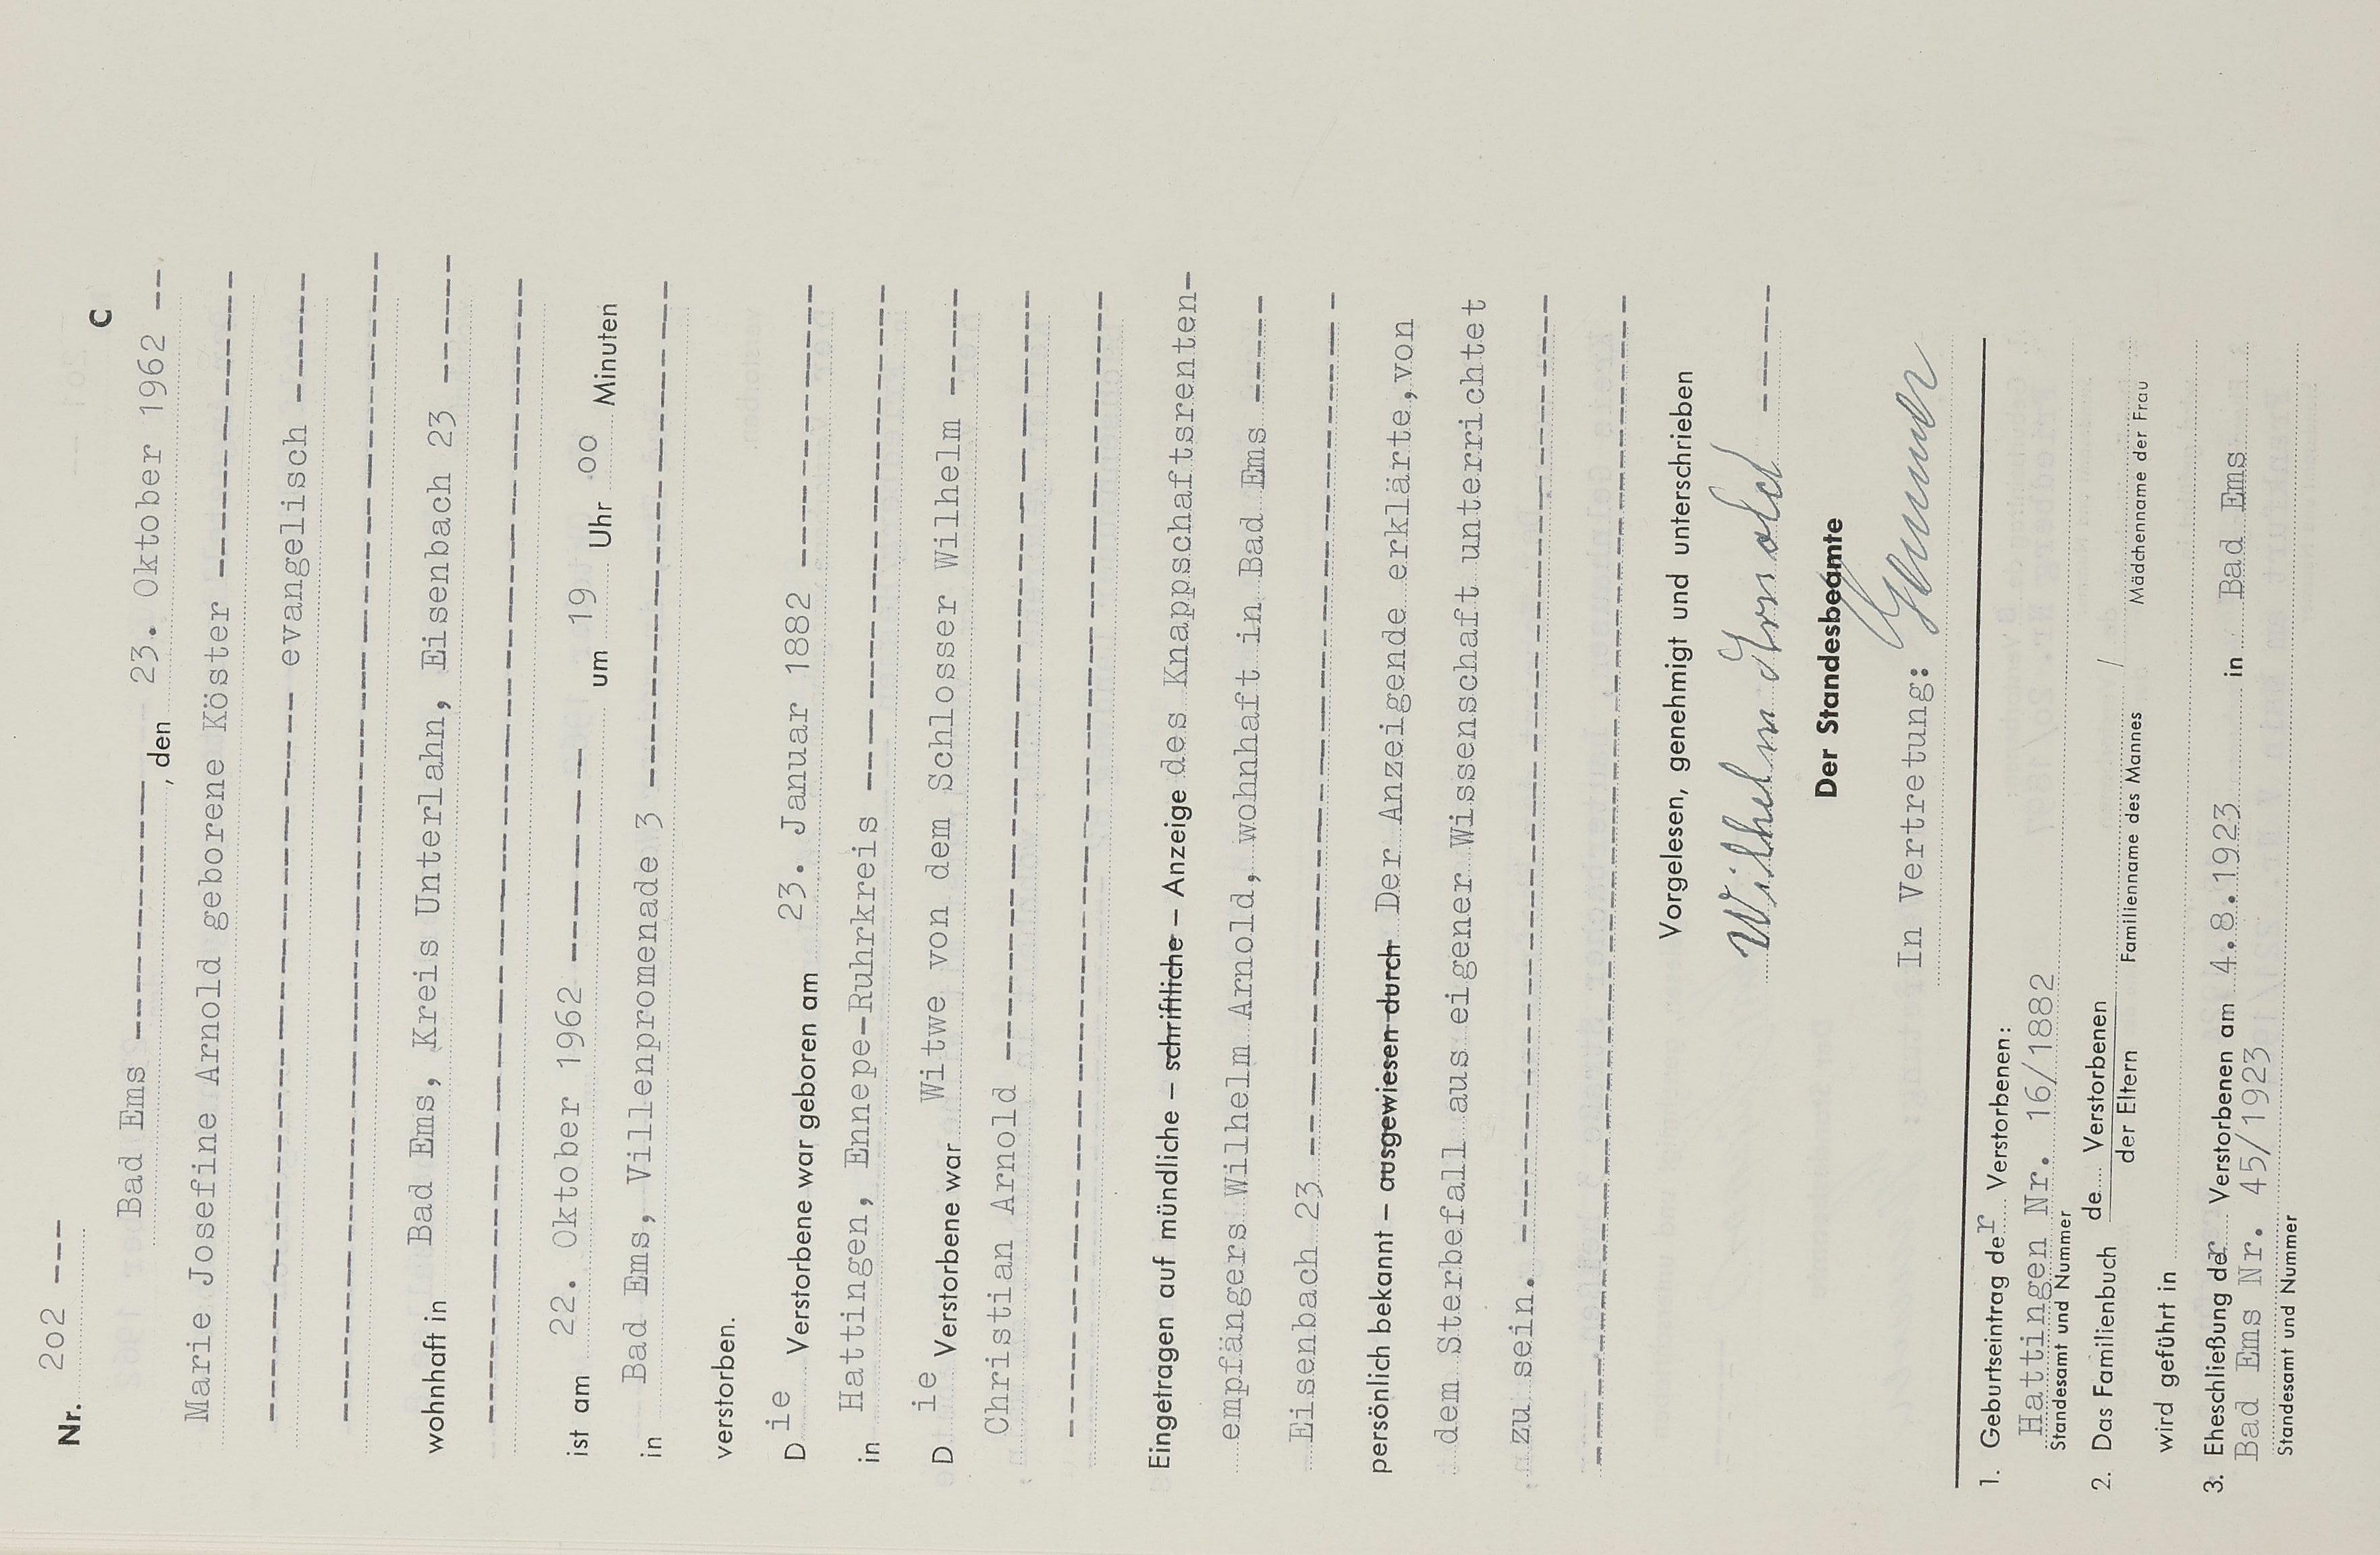 Nr. 202 ---
C
Bad Ems ------------, den 23. Oktober 1962 --
Marie Josefine Arnold geborene Köster --------------
---------------- evangelisch ------
wohnhaft in Bad Ems, Kreis Unterlahn, Eisenbach 23 ------
ist am 22. Oktober 1962 ---------- um 19 Uhr 00 Minuten
in Bad Ems, Villenpromenade 3 ----------------------
verstorben.
Die Verstorbene war geboren am 23. Januar 1882 ------------
in Hattingen, Ennepe-Ruhrkreis ----------------------
Die Verstorbene war Witwe von dem Schlosser Wilhelm -----
Christian Arnold ----------------------------------
Eingetragen auf mündliche – schriftliche – Anzeige des Knappschaftsrenten-
empfängers Wilhelm Arnold, wohnhaft in Bad Ems -----
Eisenbach 23 --------------------------------------
persönlich bekannt – ausgewiesen durch Der Anzeigende erklärte, von
dem Sterbefall aus eigener Wissenschaft unterrichtet
zu sein. ------------------------------------------
Vorgelesen, genehmigt und unterschrieben
Wilhelm Arnold ------
Der Standesbeamte
In Vertretung:
1. Geburtseintrag der Verstorbenen:
Hattingen Nr. 16/1882
Standesamt und Nummer
2. Das Familienbuch de Verstorbenen
der Eltern
/
Familienname des Mannes Mädchenname der Frau
wird geführt in
3. Eheschließung der Verstorbenen am 4.8.1923 in Bad Ems
Bad Ems Nr. 45/1923
Standesamt und Nummer